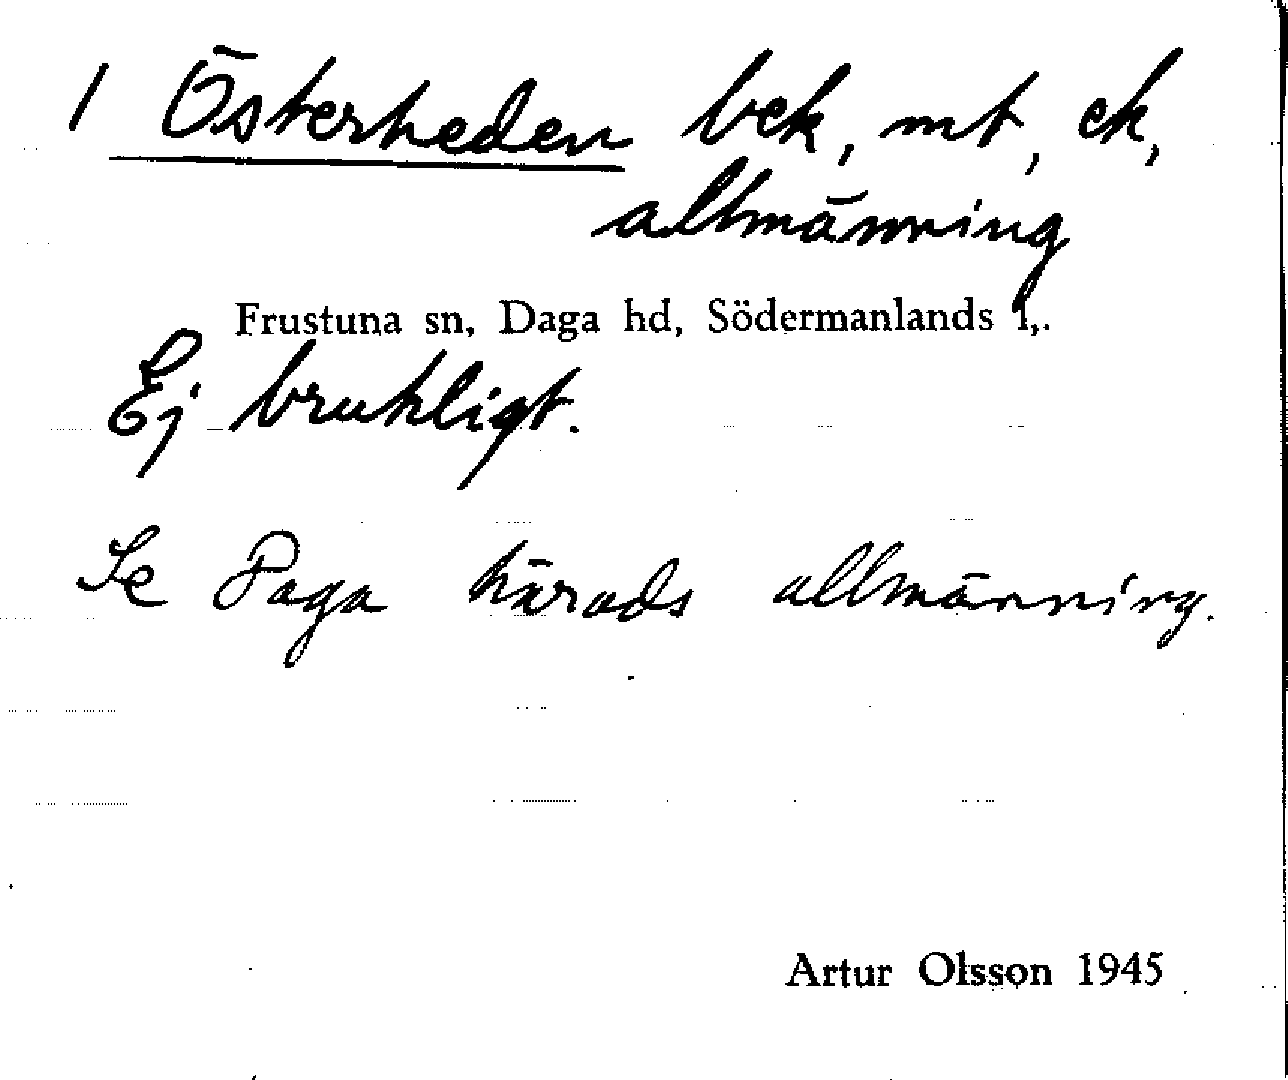 / Österheden bek, mt, ek,
allmänning
Frustuna sn, Daga hd, Södermanlands l,.
Ej brukligt.
Se Daga härads allmänning.
Artur Olsson 1945